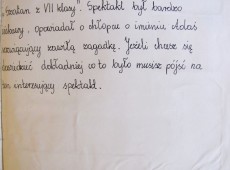 szatan z VII klasy". Spektakl był bardzo
ciekawy, opowiadał o chłopcu o imieniu Adaś
rozwiązujący zawiłą zagadkę. Jeżeli chcesz się
dowiedzieć dokładniej co to było musisz pójść na
ten interesujący spektakl.